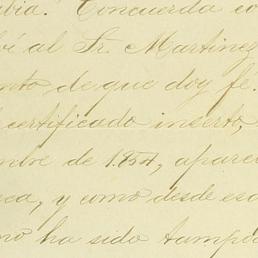 bia." Concuerda co
bí al Sr. Martinez
nto, de que doy fé.
certificado inserto,
mbre de 1854, aparec
ca, y como desde es
no ha sido tampo